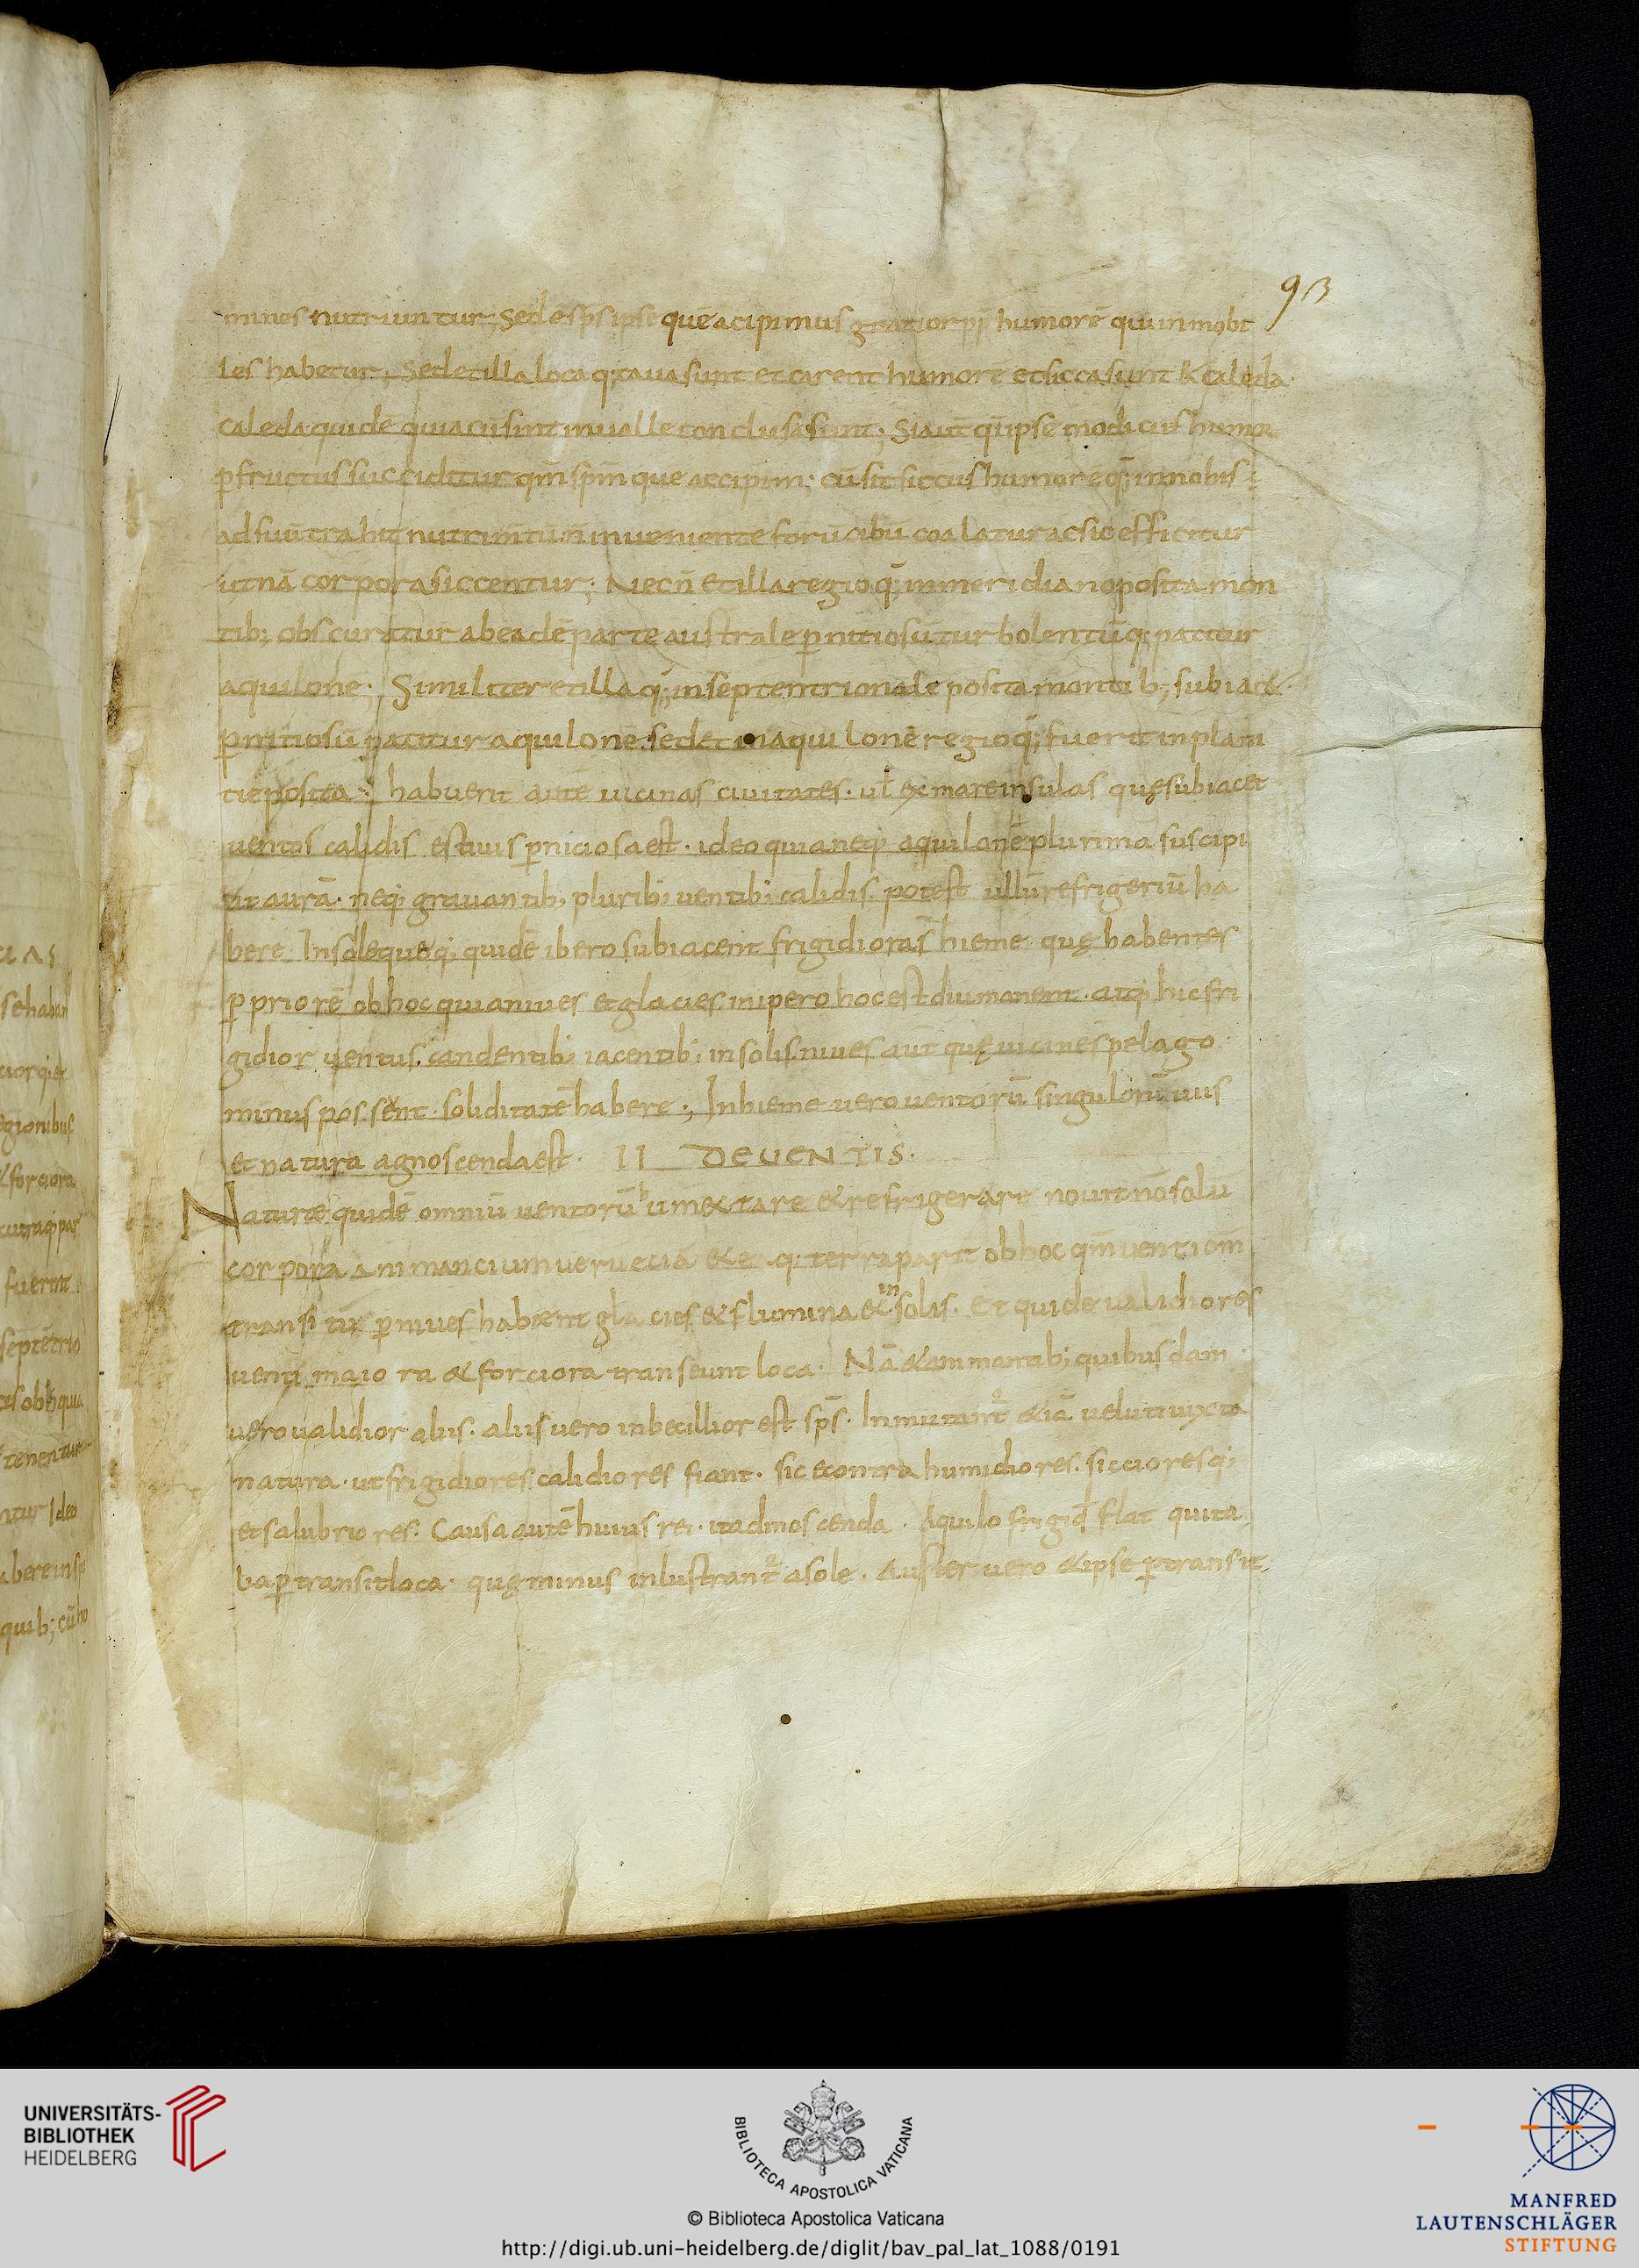 93
mines nutriuntur; Sed ē sp̄s ipse quē acipimus gratior pp̄ humorē qui in mobi
les habetur; Sed et illa loca q; cava sunt et carent humorē et sicca sunt & caleda
caleda quidē quia cū sint in ualle conclusa sunt; Si aut̄ qm̄ ipse modicus humor
p fructus succiditur qm̄ spm̄ que accipim; cū sit siccus humore q; in nobis
ad suū trahit nutrim̄tū n̄ inueniente forū cibū coalatur ac sic efficitur
ut nr̄a corpora siccentur; Nec n̄ et illa regio q; in meridiano posita mon
tib; obscuratur ab eadē parte australe pnitiosū turbolentūq; patitur
aquilone; Similiter et illa q; in septentrionale posita montib; subiac&
pnitiosū patitur aquilone. sed et in aquilonē regio q; fuerit in plani
tie posita habuerit autē uicinas ciuitates. ul̄ ex mare insulas quę subiacet
uentos calidis estiuis pniciosa est. ideo quia neq; aquilonē plurimā suscipi
at aurā. neq; grauantib; plurib; uentib; calidis. potest ullū refrigeriū ha
bere Insole quęq; quidē ibero subiacent frigidioras hieme quę habentes
p priorē ob hoc quia niues et glacies. in ipero hoc est diu manent. atq; hic fri
gidior uentus. candentib; iacentib; in solis. niues aūt quę uicines pelago
minus possent. soliditatē habere; In hieme uero uentorū singulorū uiis
et natura agnoscenda est. II DE UENTIS.
Naturæ quidē omniū uentorū umectare & refrigerare nouit nō solū
corpora animancium ueru eciā & ea q; terra parit ob hoc qm̄ uenti om̄
transitū p niues habent glacies & flumina & in solis. Et quidē ualidiores
uenti maiora & forciora transeunt loca. Nā & animantib; quibusdam
uero ualidior aliis. aliis uero inbecillior est sp̄s. Inmutant̄ & iā uelut iuxta
natura. ut frigidiores calidiores fiant. sic econtra humidiores. sicciores q;
et salubriores. Causa autē huius rei. ita dinoscenda. Aquilo frigid flat qui ta
ba ptransit loca. quę minus inlustrant̄ a sole. Auster uero & ipse ptransit
UNIVERSITÄTS-
BIBLIOTHEK
HEIDELBERG
BIBLIOTECA APOSTOLICA VATICANA
© Biblioteca Apostolica Vaticana
http://digi.ub.uni-heidelberg.de/diglit/bav_pal_lat_1088/0191
MANFRED
LAUTENSCHLÄGER
STIFTUNG